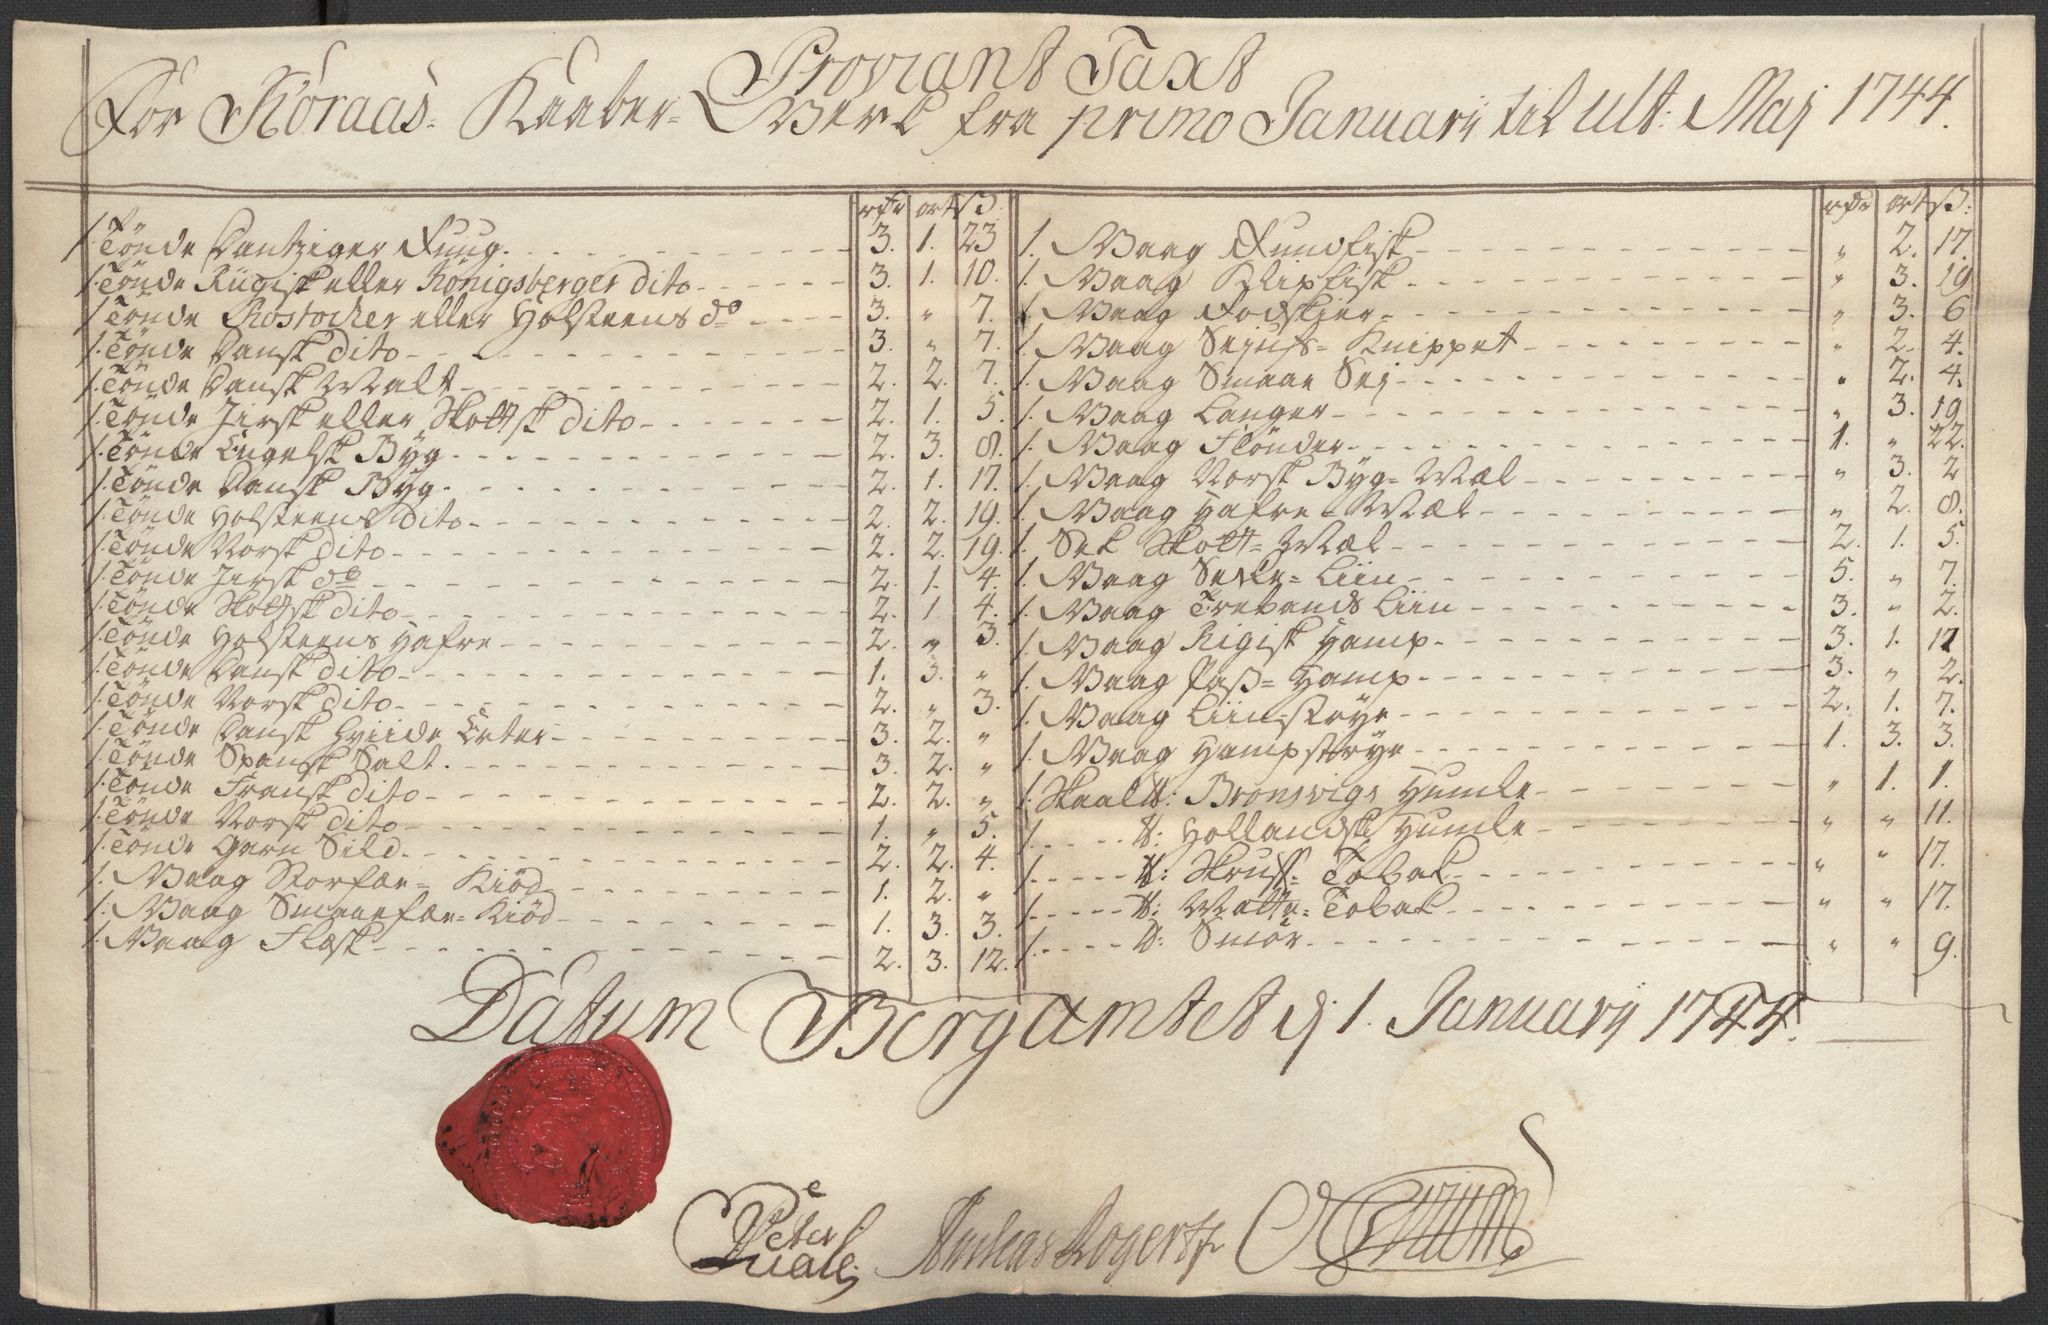 Proviant Taxt
For Röraas= Kaaber= Werk fra primo Januarij til ult: Maj 1744.
rdr ort ß.
1. Tönde Dantziger Rug. 3. 1. 23
1. Tönde Rügisk eller Königsberger dito 3. 1. 10.
1. Tönde Rostocker eller Holsteens do 3. " 7.
1. Tönde Dansk dito 3. " 7.
1. Tönde Dansk Malt 2. 2. 7.
1. Tönde Jirsk eller Skottsk dito 2. 1. 5.
1. Tönde Engelsk Byg 2. 3. 8.
1. Tönde Dansk Byg 2. 1. 17.
1. Tönde Holsteens dito 2. 2. 19.
1. Tönde Norsk dito 2. 2. 19.
1. Tönde Jirsk do 2. 1. 4.
1. Tönde Skottsk dito 2. 1 4.
1. Tönde Holsteens Hafre 2. " 3.
1. Tönde Dansk dito 1. 3. "
1. Tönde Norsk dito 2. " 3.
1. Tönde Dansk Hviide Erter 3. 2. "
1. Tönde Spansk Salt. 3. 2. "
1. Tönde Fransk dito 2. 2. "
1. Tönde Norsk dito 1. " 5.
1. Tönde Garn Sild. 2. 2. 4.
1. Vaag Storfæe= Kiöd 1. 2. "
1. Vaag Smaaefæe= Kiöd 1. 3. 3.
1. Vaag Flæsk 2. 3. 12.
rdr ort ß:
1. Vaag Rundfisk " 2. 17.
1. Vaag Klipfisk " 3. 19
1. Vaag Rodskjer " 3. 6
1. Vaag Sejufs= Knippet " 2. 4.
1. Vaag Smaae Sej " 2. 4.
1. Vaag Langer " 3. 19
1. Vaag Flönder 1. " 22.
1. Vaag Norsk Byg= Mæl " 3. 2
1. Vaag Hafre= Mæl " 2. 8.
1. Sek Skott= Mæl 2. 1. 5.
1. Vaag Liin 5. " 7.
1. Vaag Trebands Liin 3. " 2.
1. Vaag Rigisk Hamp 3. 1. 12
1. Vaag Paß= Hamp 3. " 2.
1. Vaag Liinstrye 2. 1. 7.
1. Vaag Hampstrye 1. 3. 3.
1. Skaal ℔: Bronsvigs Humle " 1. 1.
1. ℔: Hollandsk Humle " " 11.
1. ℔: Skruff= Tobak " " 17.
1. ℔: Tobak " " 17.
1. ℔: Smör " " 9.
Datum Bergamtet d 1. Januarij 1744.
Peter
Andreas Rogertz